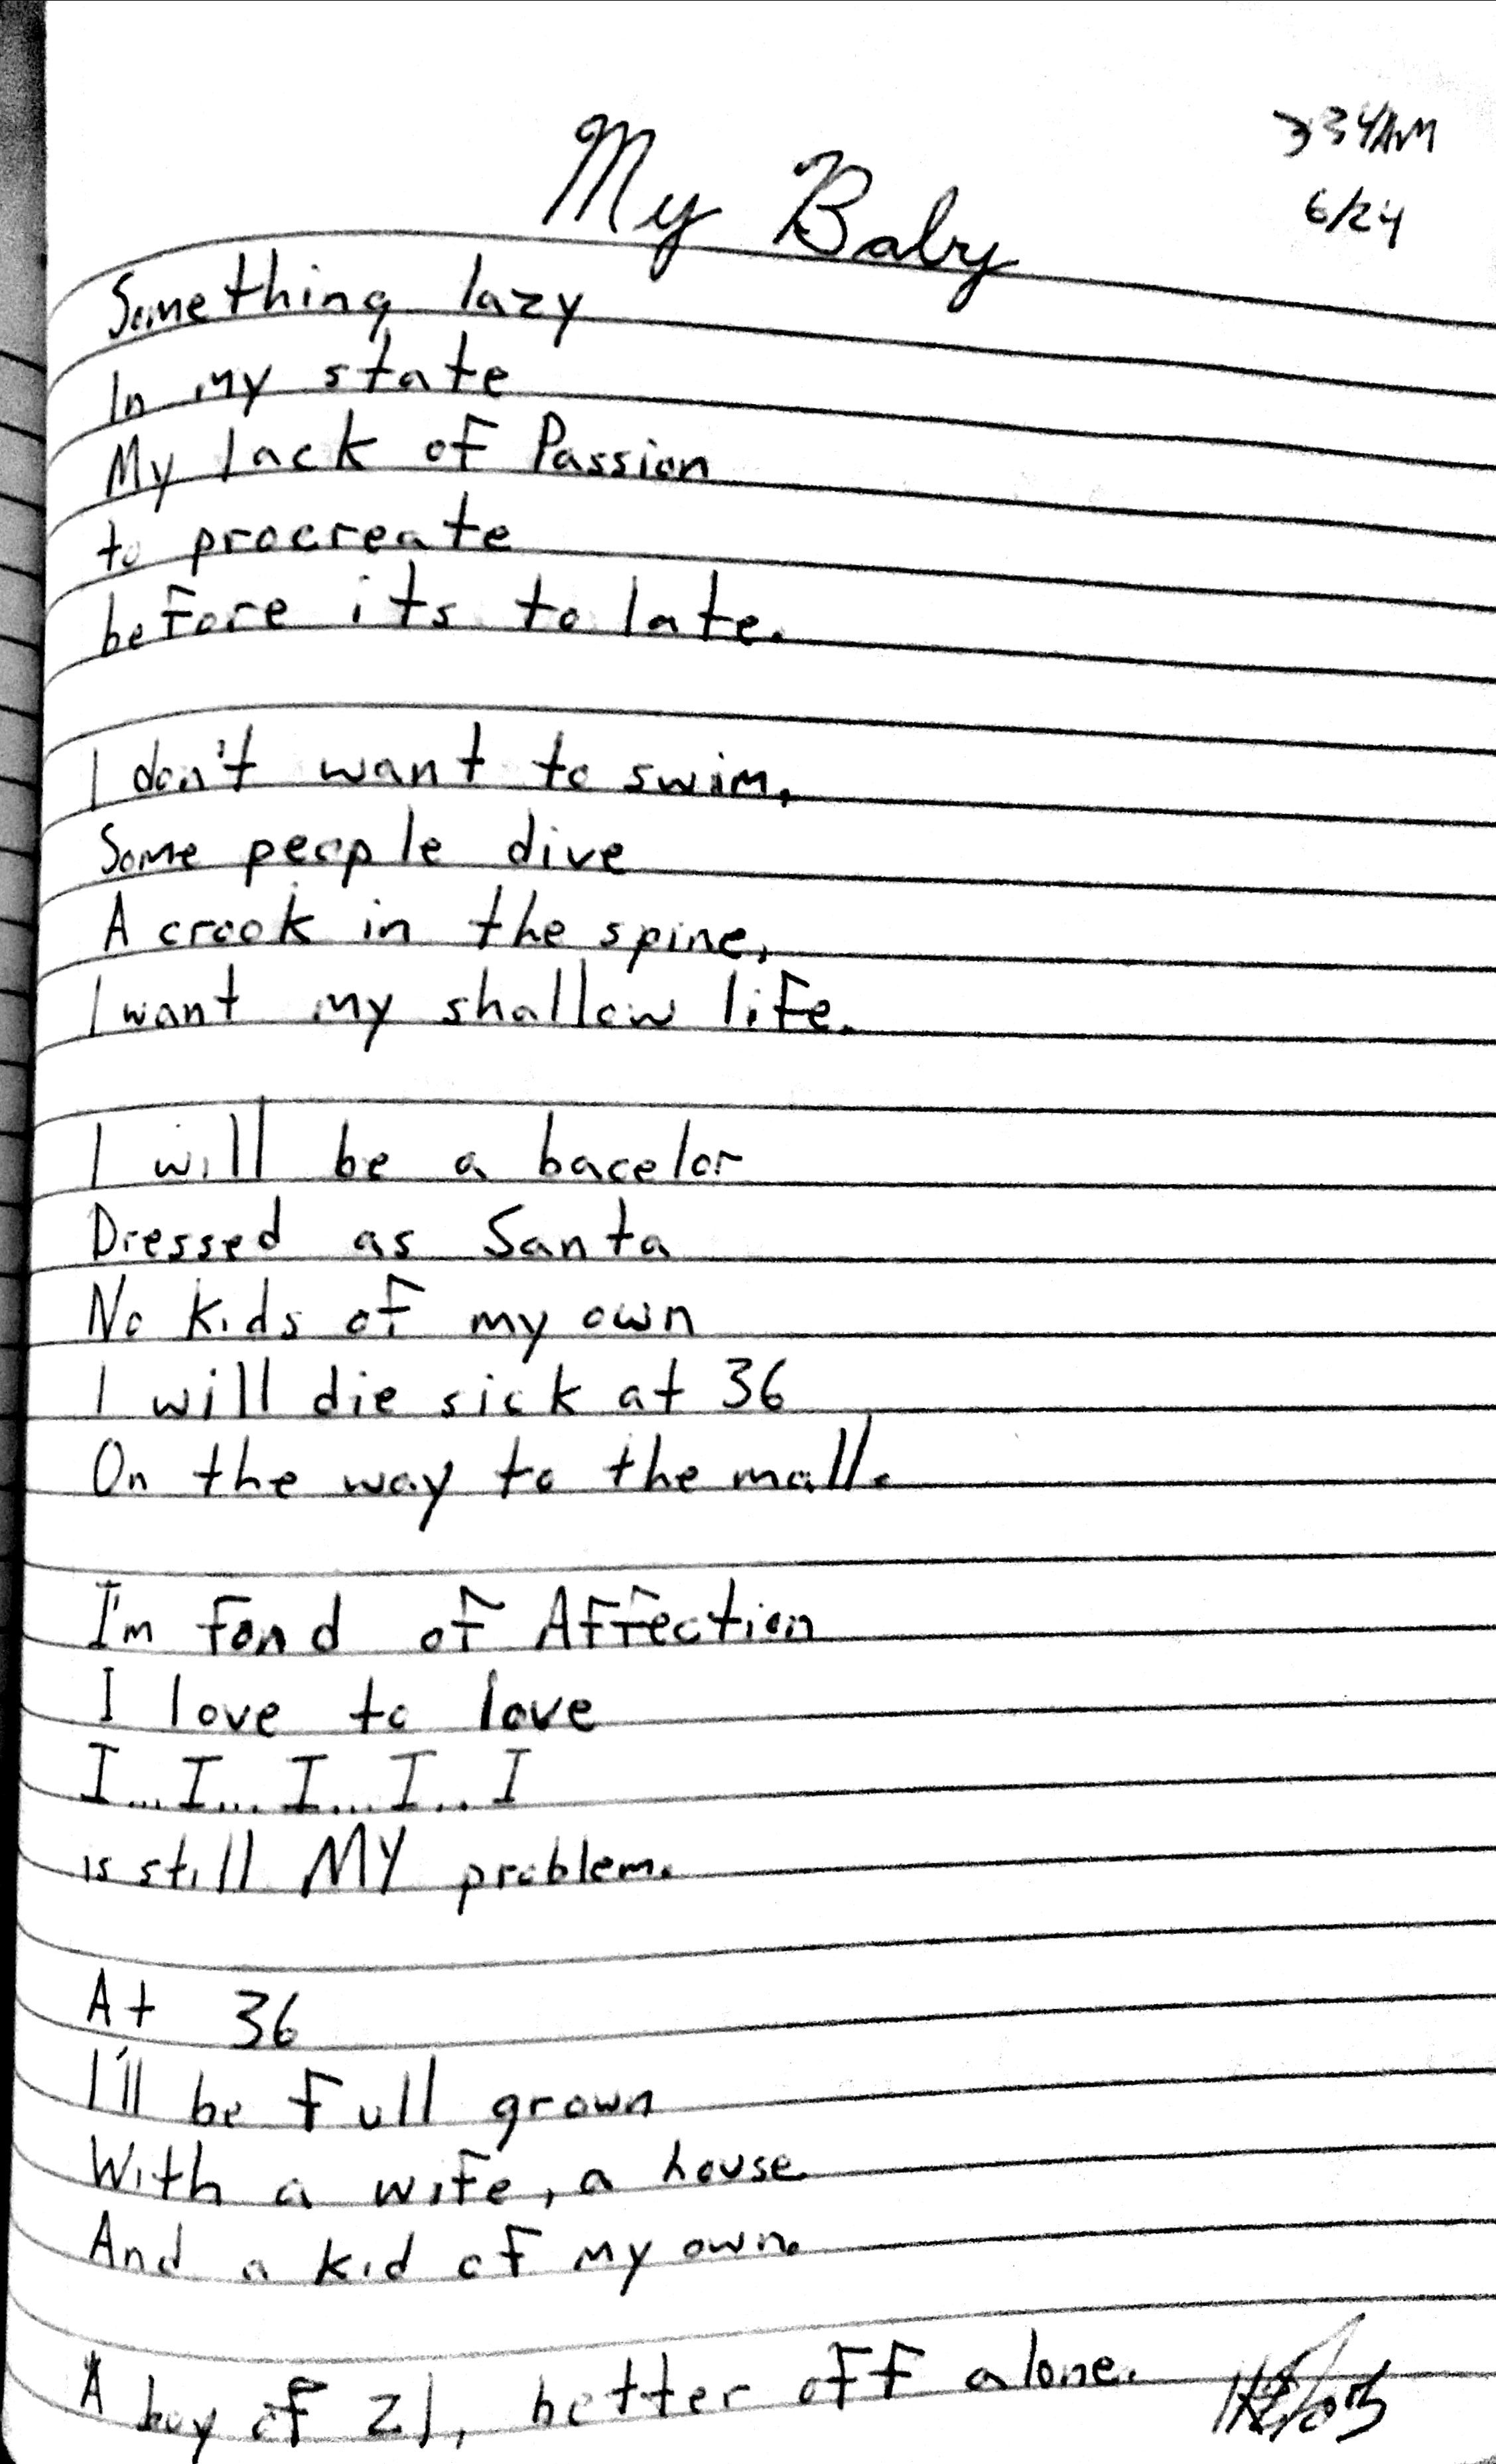 My Baby
3 34AM
6/24
Something lazy
In my state
My lack of Passion
to procreate
before its to late.
I don't want to swim,
Some people dive
A crook in the spine,
I want my shallow life.
I will be a bacelor
Dressed as Santa
No kids of my own
I will die sick at 36
On the way to the mall.
I'm fond of Affection
I love to love
I...I...I...I...I
is still MY problem.
At 36
I'll be full grown
With a wife, a house
And a kid of my own.
A boy of 21, better off alone.